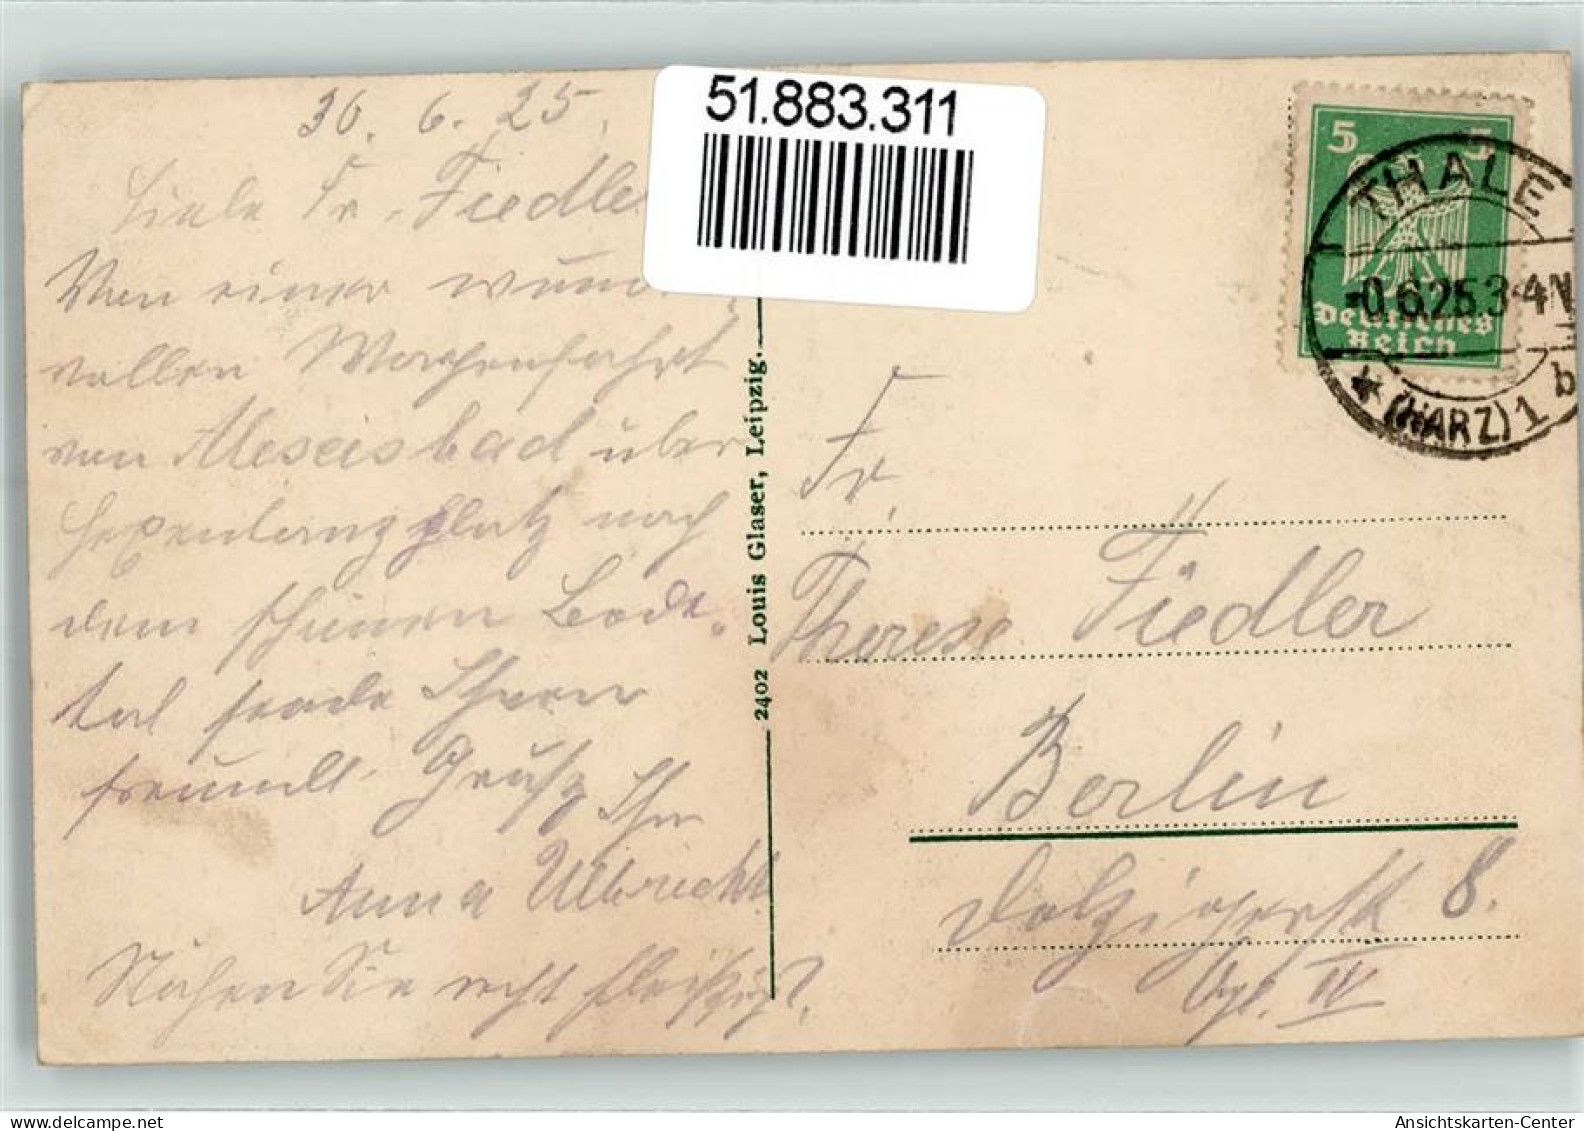 30. 6. 25.
Liebe Fr. Fiedle
Von einer wund
vollen Wagenfahrt
von Alexisbad über
Hexentanzplatz nach
dem schönen Bode-
tal sende Ihnen
freundl. Grüße Ihre
Anna Ulbricht
Nähen Sie recht fleißig?
51.883.311
2402 Louis Glaser, Leipzig.
5 5
Deutsches
Reich
THALE
0.6.25.3-4N
* (HARZ) 1 b
Fr.
Therese Fiedler
Berlin
Dolzigerstr 8.
IV
Ansichtskarten-Center
www.delcampe.net